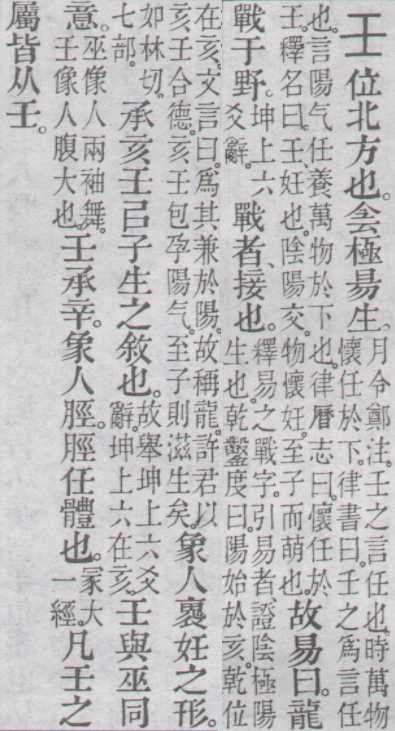 壬 位北方也。侌極昜生。月令鄭注。壬之言任也。時萬物懷任於下。律書曰。壬之爲言任
也。言陽气任養萬物於下也。律曆志曰。懷任於壬。釋名曰。壬、妊也。陰陽交。物懷妊。至子而萌也。故易曰。龍
戰于野。坤上六爻辭。戰者、接也。釋易之戰字。引易者、證陰極陽生也。乾鑿度曰。陽始於亥。乾位
在亥。文言曰。爲其兼於陽。故稱龍。許君以亥壬合德。亥壬包孕陽气。至子則滋生矣。象人褢妊之形。
如林切。七部。承亥壬㠯子生之敘也。故舉坤上六爻辭。坤上六在亥。壬與巫同
意。巫像人兩袖舞。壬像人腹大也。壬承辛。象人脛。脛任體也。冡大一經。凡壬之
屬皆从壬。